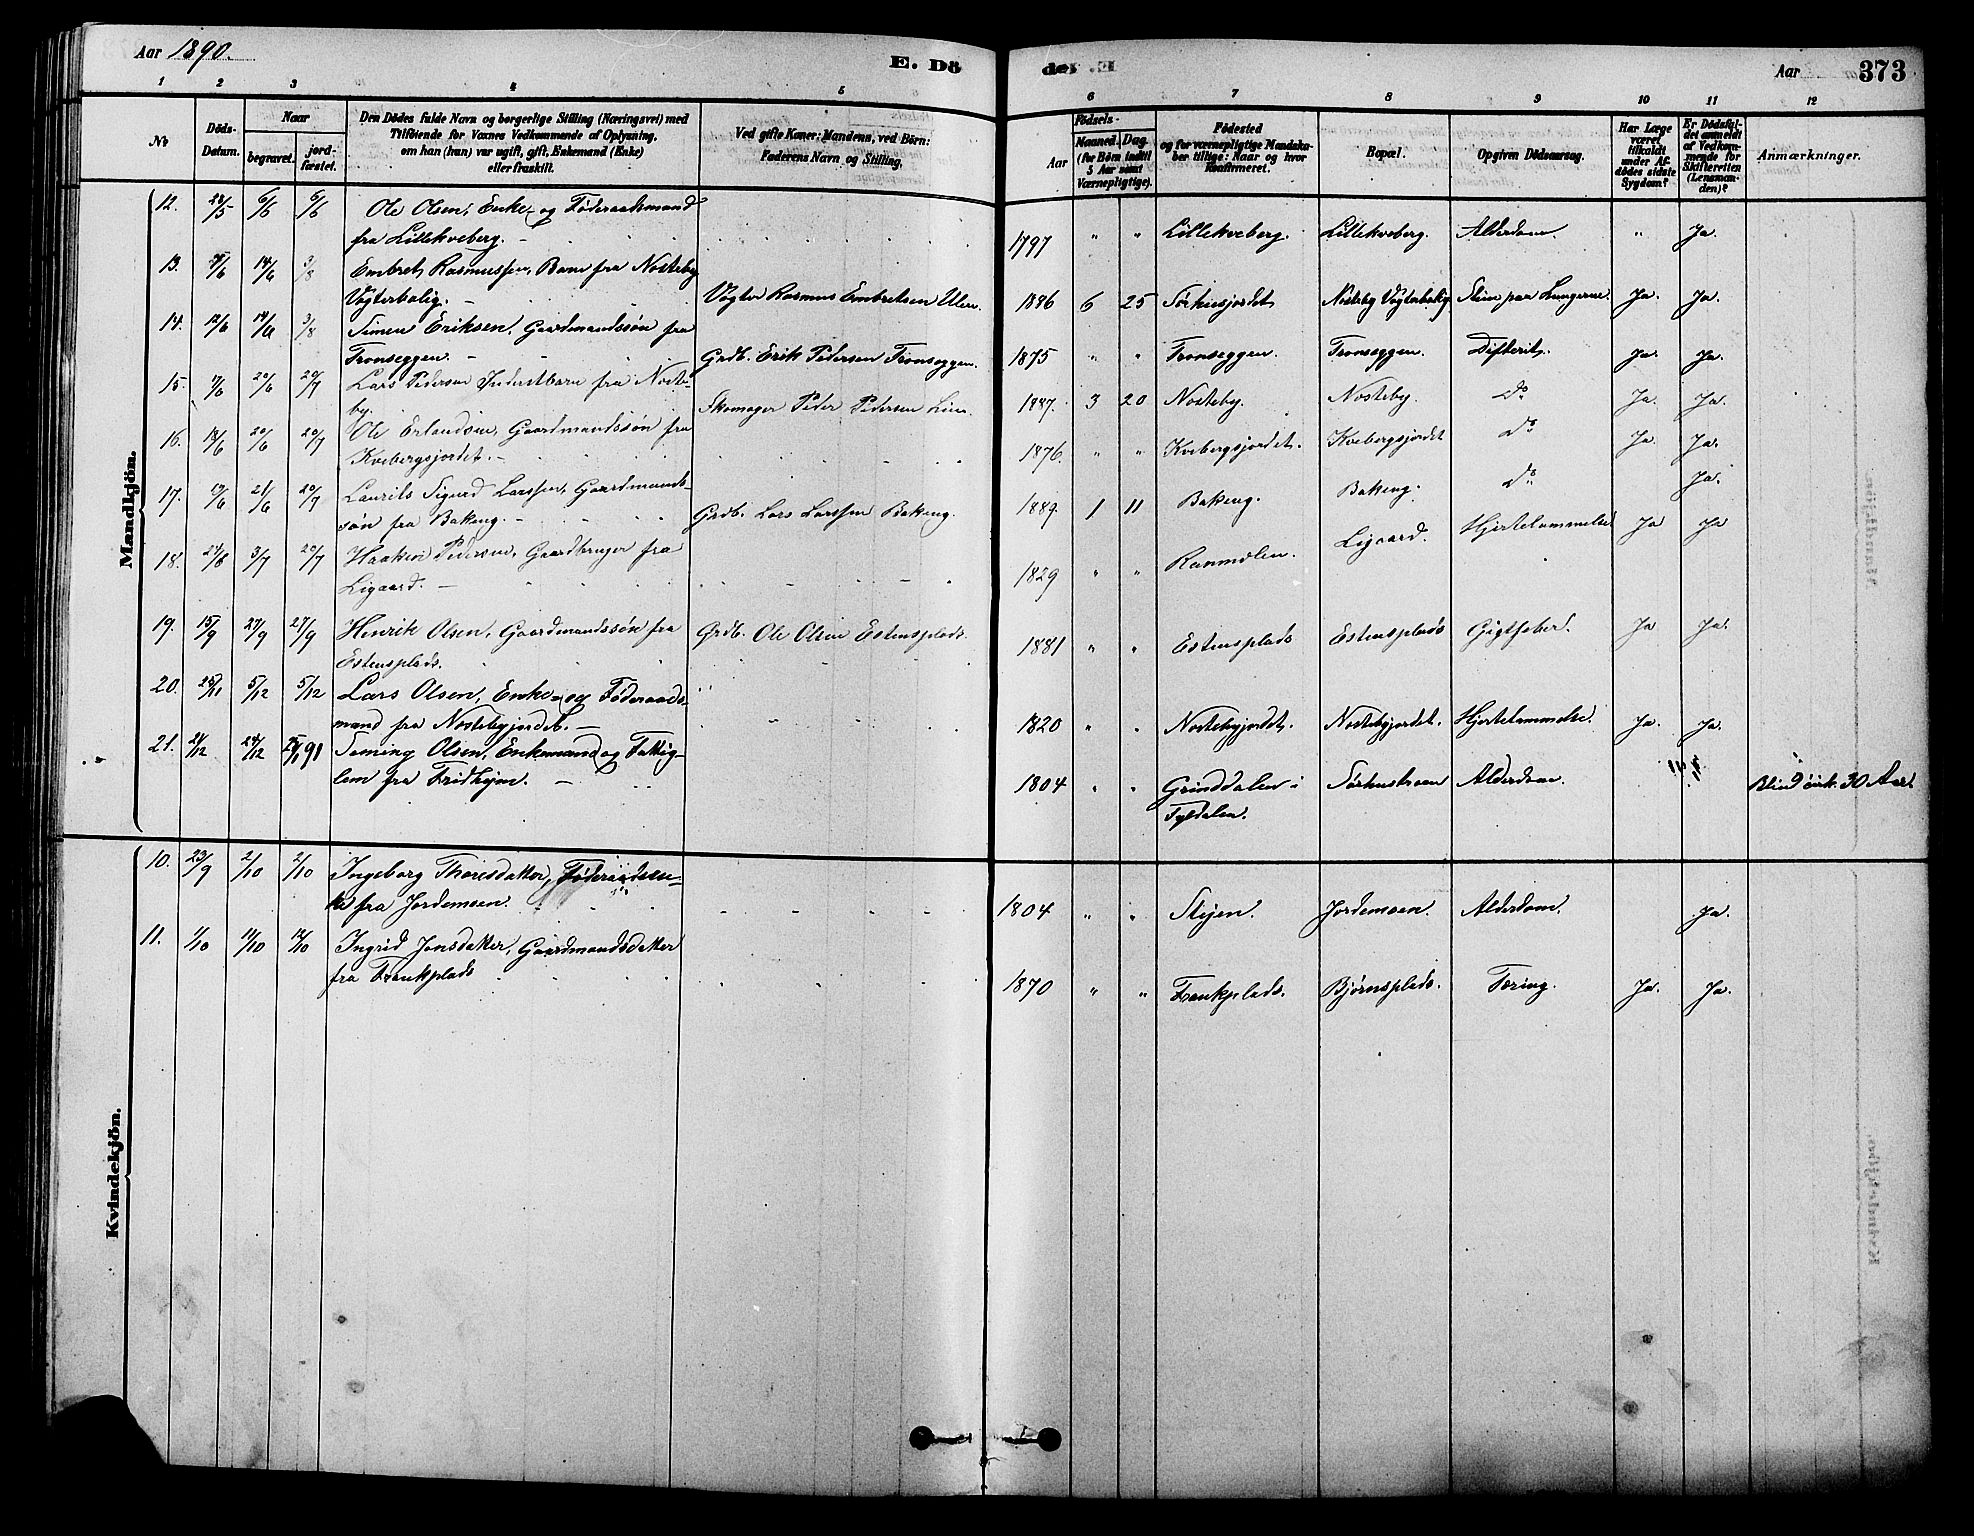 Aar 1890.
E. Dö
der. E
Aar
373
1 2 3 4 5 6 7 8 9 10 11 12
No
Döds-Datum.
Naar
begravet.
jordfæstet.
Den Dödes fulde Navn og borgerlige Stilling (Næringsvei) med
Tilföiende for Voxnes Vedkommende af Oplysning,
om han (hun) var ugift, gift, Enkemand (Enke)
eller fraskilt.
Ved gifte Koner: Mandens, ved Börn:
Faderens Navn og Stilling.
Födsels-
Aar
Maaned. Dag.
(for Börn indtil
5 Aar samt
Værnepligtige).
Födested
og for værnepligtige Mandskaber tillige: Naar og hvor
Konfirmeret.
Bopæl.
Opgiven Dödsaarsag.
Har Læge
været
tilkaldt
under Afdödes sidste
Sygdom?
Er Dödsfaldet anmeldt
af Vedkommende for
Skifteretten
(Lensmanden)?
Anmærkninger.
Mandkjön.
12. 28/5 6/6 6/6 Ole Olsen, Enke- og Föderaadsmand
fra Lillekveberg. 1797 " " Lillekveberg. Lillekveberg. Alderdom. " Ja.
13. 14/6 3/8 Embret Rasmussen, Barn fra Nosteby
Vogterbolig. Vogter Rasmus Embretsen Ulen. 1886 6 25 Nosteby Vogterbolig Sliim paa Lungerne Ja. Ja.
14. 12/6 14/6 3/8 Simen Eriksen, Gaardmandssön fra
Tronseggen. Grdb. Erik Pedersen Tronseggen. 1875 " " Tronseggen. Tronseggen. Difterit. Ja. Ja.
15. 20/6 20/7 Lars Pedersen Inderstbarn fra Nosteby. Skomager Peder Pedersen Lien. 1887. 3 20 Nosteby. Nosteby. Do Ja. Ja.
16. 18/6 20/6 20/7 Ole Erlandsen, Gaardmandssön fra
Kvebergsjordet. 1876. " " Kvebergsjordet. Kvebergsjordet Do Ja. Ja.
17. 19/6 21/6 20/7 Laurits Sigurd Larssen, Gaardmandssön fra Bakeng. Grdb. Lars Larssen Bakeng. 1889. 1 11 Bakeng. Bakeng. Do Ja.
18. 3/7 20/7 Haaken Pedersen, Gaardbruger fra
Ligaard. 1829 " " Ranmolen. Ligaard. Hjertelammelse Ja Ja
19. 15/9 27/9 27/9 Henrik Olsen, Gaardmandssön fra
Estensplads. Grdb. Ole Olsen Estensplads. 1881 " " Estensplads Estensplads Gigtfeber. Ja Ja.
20. 28/11 5/12 5/12 Lars Olsen, Enke- og Föderaadsmand fra Nostebyjordet. 1820 " " Nostebyjordet. Nostebyjordet. Hjertelammelse. Ja. Ja.
21. 21/12 Seming Olsen, Enkemand og Fattiglem fra Fridheim. 1804 " " Grinddalen i
Tyldalen. Alderdom Blind cirk. 30 Aar.
Kvindekjön.
10. 23/9 2/10 2/10 Ingeborg Thoresdatter, Föderaadsenke fra Jordemoen. 1804 " " Stejen. Jordemoen. Alderdom. Ja.
11. 1/10 12/10 Ingrid Jonsdatter, Gaardmandsdatter
fra Frankplads 1870 " " Frankplads. Björnsplads. Tæring. Ja. Ja.